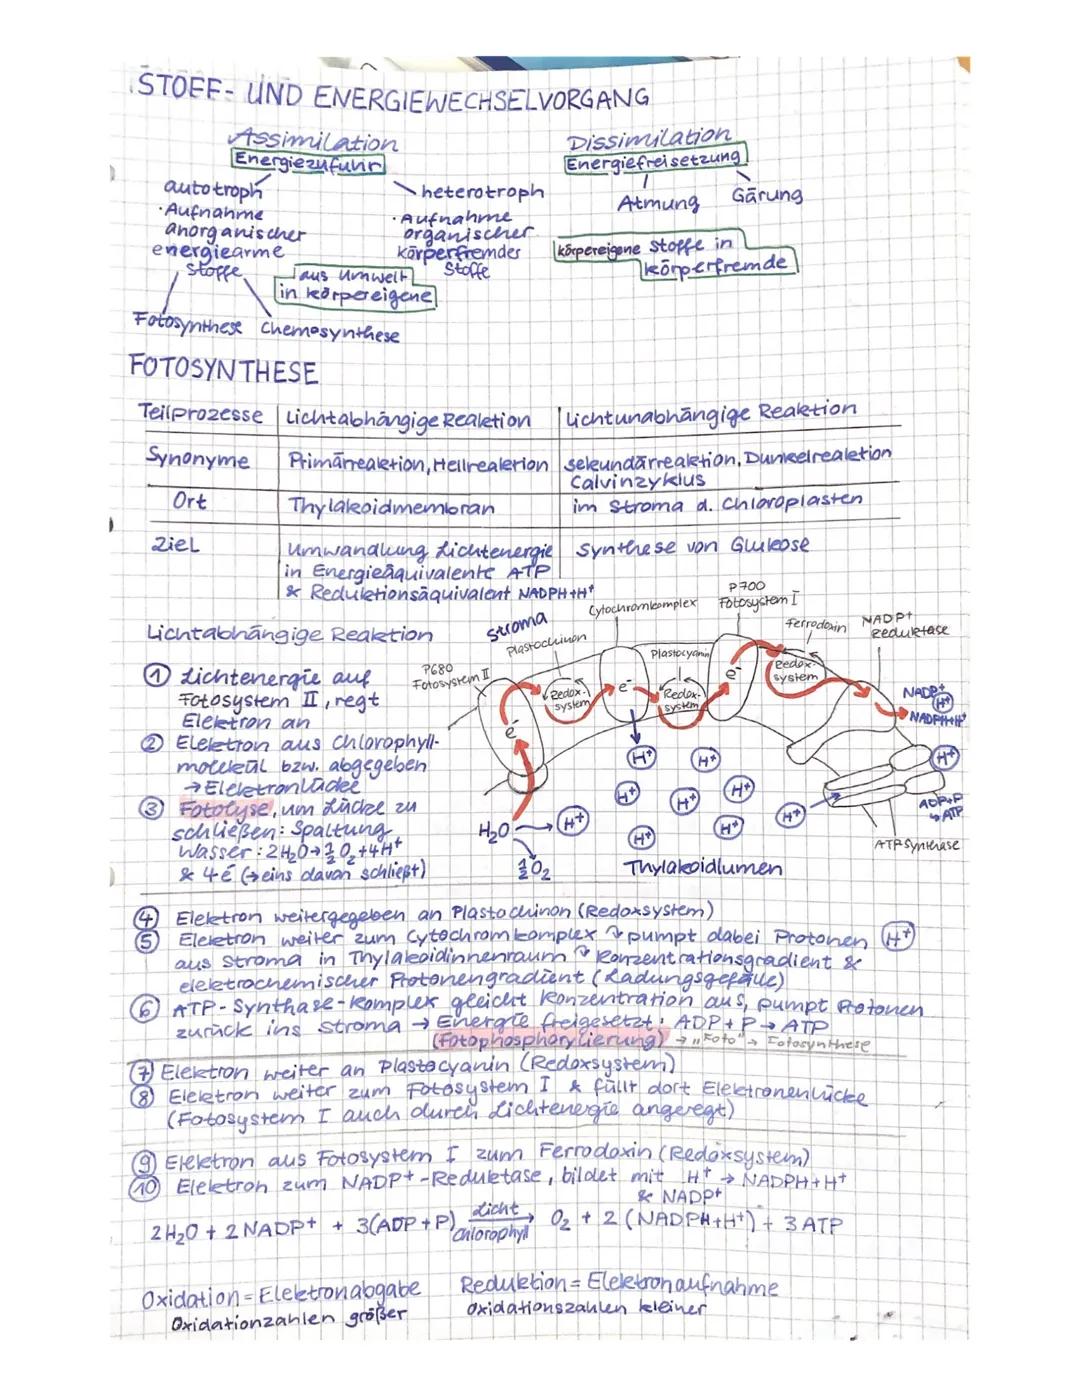 STOFF- UND ENERGIEWECHSELVORGANG
Assimilation
Energiezufuhr
autotroph
· Aufnahme
anorganischer
energiearme
Stoffe
heterotroph
· Aufnahme
organischer
körperfremder
Stoffe
aus Umwelt
in körpereigene
Fotosynthese Chemosynthese
Dissimilation
Energiefreisetzung
Atmung Gärung
körpereigene Stoffe in
körperfremde
FOTOSYNTHESE
Teilprozesse Lichtabhängige Reaktion Lichtunabhängige Reaktion
Synonyme Primärreaktion, Hellreaktion Sekundärreaktion, Dunkelreaktion
Calvinzyklus
Ort Thylakoidmembran im Stroma d. Chloroplasten
Ziel Umwandlung Lichtenergie Synthese von Glukose
in Energieäquivalente ATP
& Reduktionsäquivalent NADPH+H⁺
Lichtabhängige Reaktion
① Lichtenergie auf
Fotosystem II, regt
Elektron an
② Elektron aus Chlorophyll-
molekül bzw. abgegeben
→ Elektronlücke
③ Fotolyse, um Lücke zu
schließen: Spaltung
Wasser: 2H₂O → ½O₂ + 4H⁺
& 4é (→ eins davon schließt)
Stroma
P680
Fotosystem II
Plastochinon
Redox-
system
Cytochromkomplex
Plastocyanin
Redox-
system
P700
Fotosystem I
Ferrodoxin
Redox-
system
NADP⁺
Reduktase
NADP⁺
H⁺
NADPH+H⁺
e⁻
e⁻
e⁻
H⁺ H⁺ H⁺
H⁺ H⁺ H⁺
H₂O → H⁺ H⁺ H⁺ H⁺
½O₂
Thylakoidlumen
ADP+P
↳ ATP
ATPSynthase
④ Elektron weitergegeben an Plastochinon (Redoxsystem)
⑤ Elektron weiter zum Cytochromkomplex ↷ pumpt dabei Protonen H⁺
aus Stroma in Thylakoidinnenraum ↷ Konzentrationsgradient &
elektrochemischer Protonengradient (Ladungsgefälle)
⑥ ATP-Synthase-Komplex gleicht Konzentration aus, pumpt Protonen
zurück ins Stroma → Energie freigesetzt: ADP + P → ATP
(Fotophosphorylierung) → „Foto" → Fotosynthese
⑦ Elektron weiter an Plastocyanin (Redoxsystem)
⑧ Elektron weiter zum Fotosystem I & füllt dort Elektronenlücke
(Fotosystem I auch durch Lichtenergie angeregt)
⑨ Elektron aus Fotosystem I zum Ferrodoxin (Redoxsystem)
⑩ Elektron zum NADP⁺-Reduktase, bildet mit H⁺ → NADPH+H⁺
& NADP⁺
2H₂O + 2 NADP⁺ + 3(ADP+P) Licht Chlorophyll → O₂ + 2 (NADPH+H⁺) + 3 ATP
Oxidation = Elektronabgabe Reduktion = Elektronaufnahme
Oxidationzahlen größer Oxidationszahlen kleiner